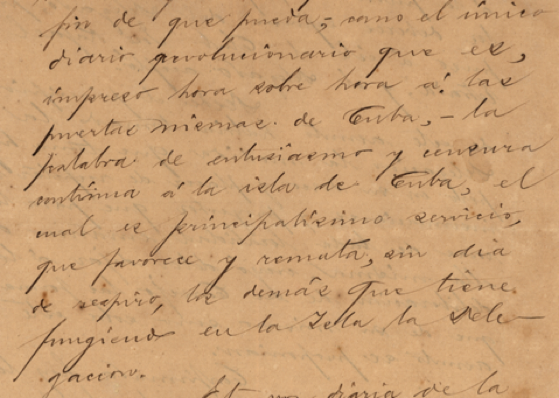 fin de que pueda, como el único
diario revolucionario que es,
impreso hora sobre hora á las
puertas mismas de Cuba, – la
palabra de entusiasmo y censura
continua á la isla de Cuba, el
cual es principalísimo servicio,
que favorece y remata, sin dia
de respiro, los demás que tiene
fungiendo en la Isla la Dele–
gacion.
diaria de la